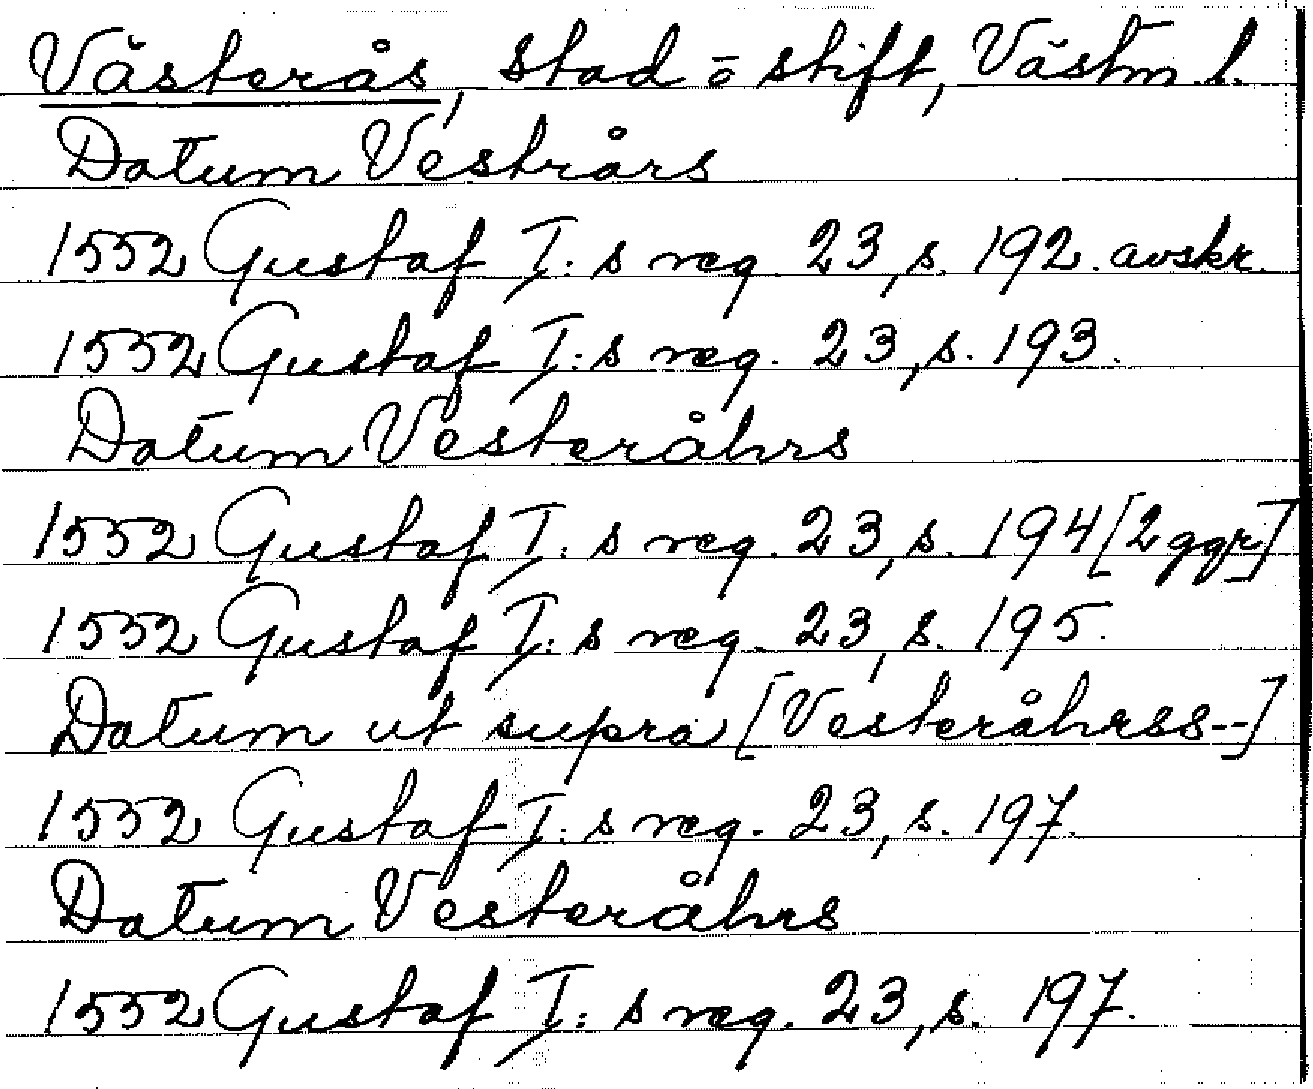 Västerås, stad o stift, Västm l.
Datum Vestrårs
1552 Gustaf I:s reg 23, s. 192. avskr.
1552 Gustaf I:s reg. 23, s. 193.
Datum Vesteråhrs
1552 Gustaf I:s reg. 23, s. 194 [2 ggr]
1552 Gustaf I:s reg. 23, s. 195.
Datum ut supra [Vesteråhrss--]
1552 Gustaf I:s reg. 23, s. 197.
Datum Vesteråhrs
1552 Gustaf I:s reg. 23, s. 197.